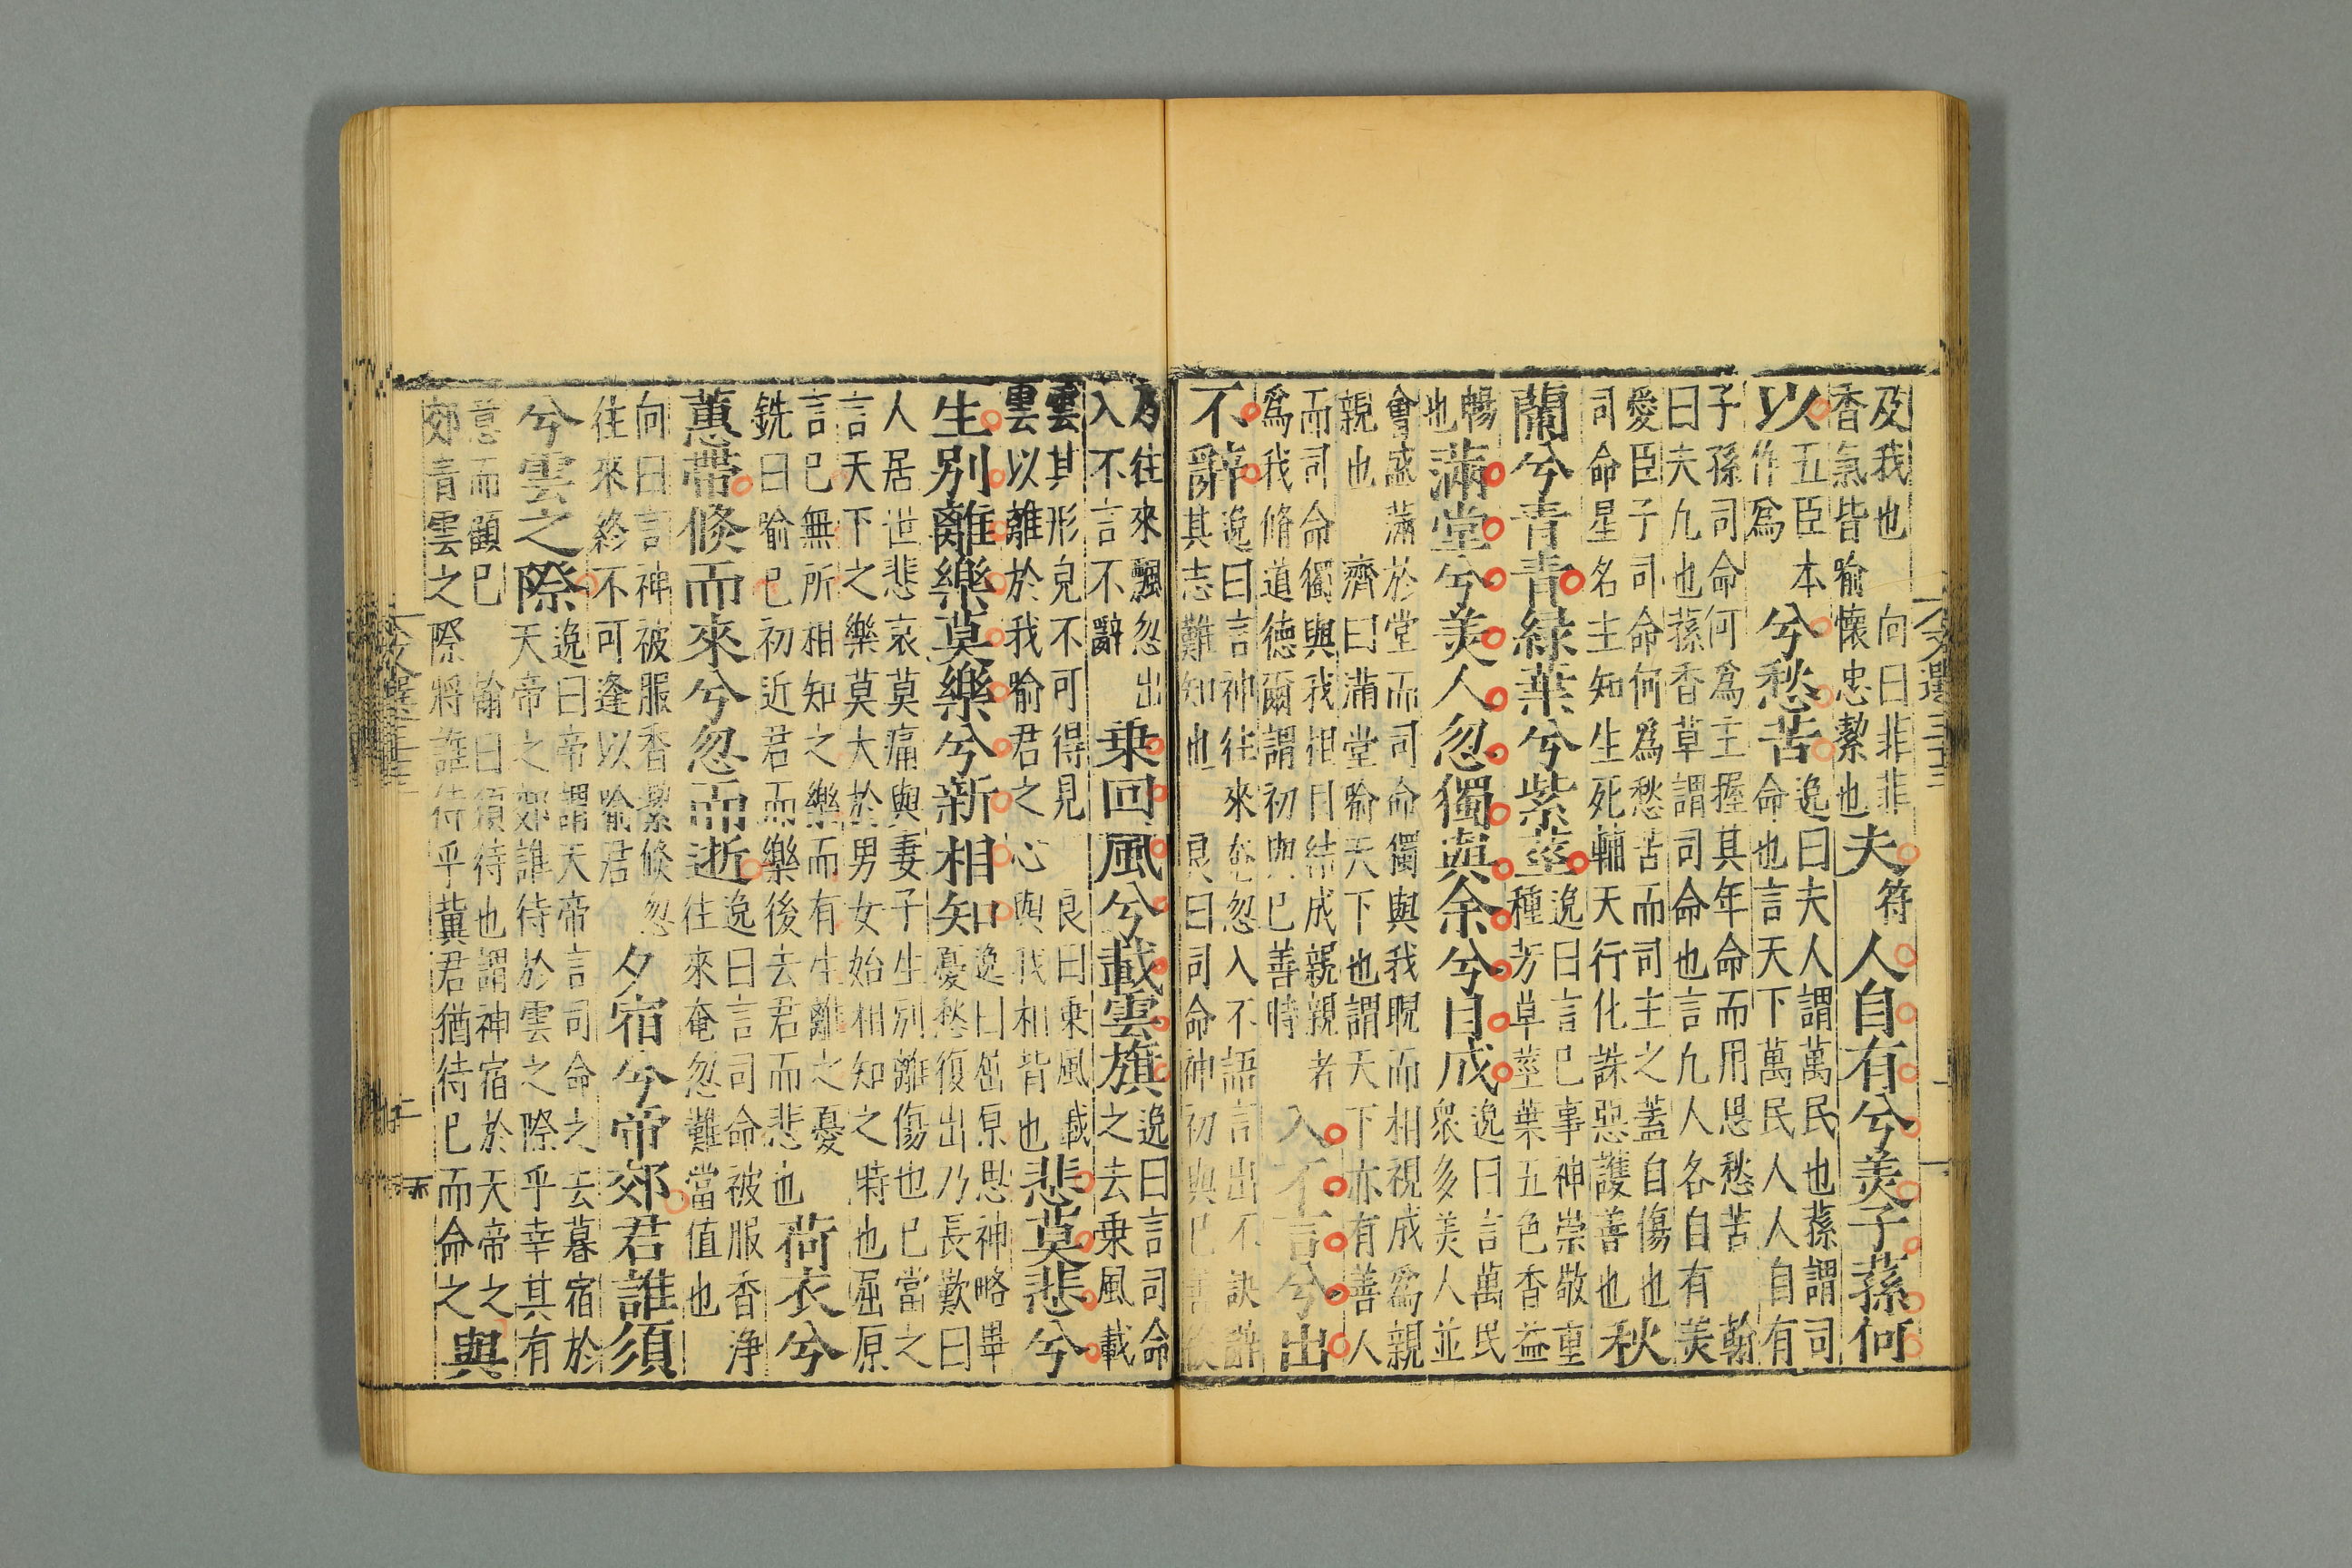 及我也 向曰非非
香氣皆喻懷忠絜也
夫
符
人自有兮美子蓀何
以
五臣本
作爲
兮愁苦
逸曰夫人謂萬民也蓀謂司
命也言天下萬民人人自有
子孫司命何爲主握其年命而用思愁苦 翰
曰夫九也蓀香草謂司命也言九人各自有美
愛臣子司命何爲愁苦而司主之蓋自傷也
司命星名主知生死輔天行化誅惡護善也
秋
蘭兮青青緑葉兮紫莖
逸曰言己事神崇敬重
種芳草莖葉五色香益
暢
也
滿堂兮美人忽獨與余兮目成
逸曰言萬民
衆多美人並
會盛滿於堂而司命獨與我睨而相視成爲親
親也 濟曰滿堂喻天下也謂天下亦有善人
而司命獨與我相目結成親親者
爲我脩道德爾謂初與己善時
入不言兮出
不辭
逸曰言神往來奄忽入不語言出不訣辭
其志難知也 良曰司命神初與己善後
乃往來飄忽出
入不言不辭
乗回風兮載雲旗
逸曰言司命
之去乗風載
雲其形皃不可得見 良曰乗風載
雲以離於我喻君之心與我相背也
悲莫悲兮
生別離樂莫樂兮新相知
逸曰屈原思神略畢
憂愁復出乃長歎曰
人居世悲哀莫痛與妻子生別離傷也己當之
言天下之樂莫大於男女始相知之時也屈原
言己無所相知之樂而有生離之憂
銑曰喻己初近君而樂後去君而悲也
荷衣兮
蕙帶倐而來兮忽而逝
逸曰言司命被服香浄
往來奄忽難當值也
向曰言神被服香絜倐忽
往來終不可逢以喻君
夕宿兮帝郊君誰須
兮雲之際
逸曰帝謂天帝言司命之去暮宿於
天帝之郊誰待於雲之際乎幸其有
意而顧己 翰曰須待也謂神宿於天帝之
郊青雲之際將誰待乎冀君猶待己而命之
與